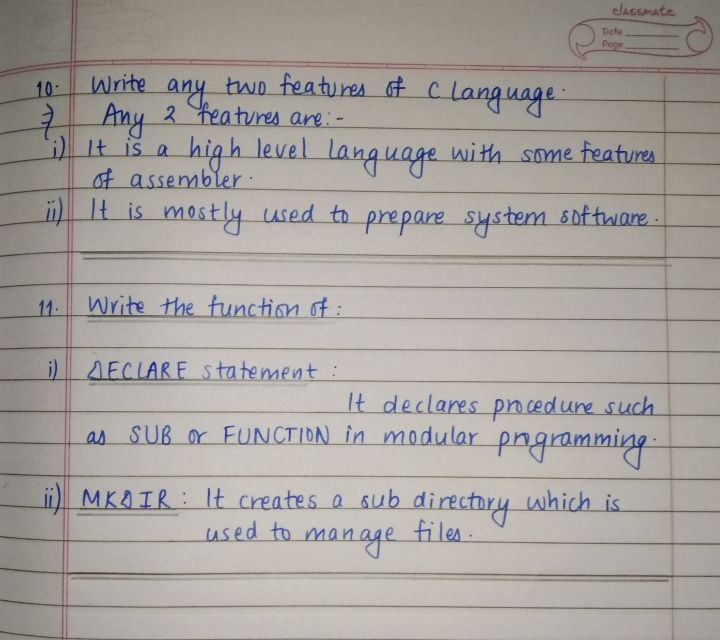 classmate
Date
Page
10. Write any two features of C language.
⇒ Any 2 features are:-
i) It is a high level language with some features
of assembler.
ii) It is mostly used to prepare system software.
11. Write the function of :
i) DECLARE statement :
It declares procedure such
as SUB or FUNCTION in modular programming.
ii) MKDIR : It creates a sub directory which is
used to manage files.